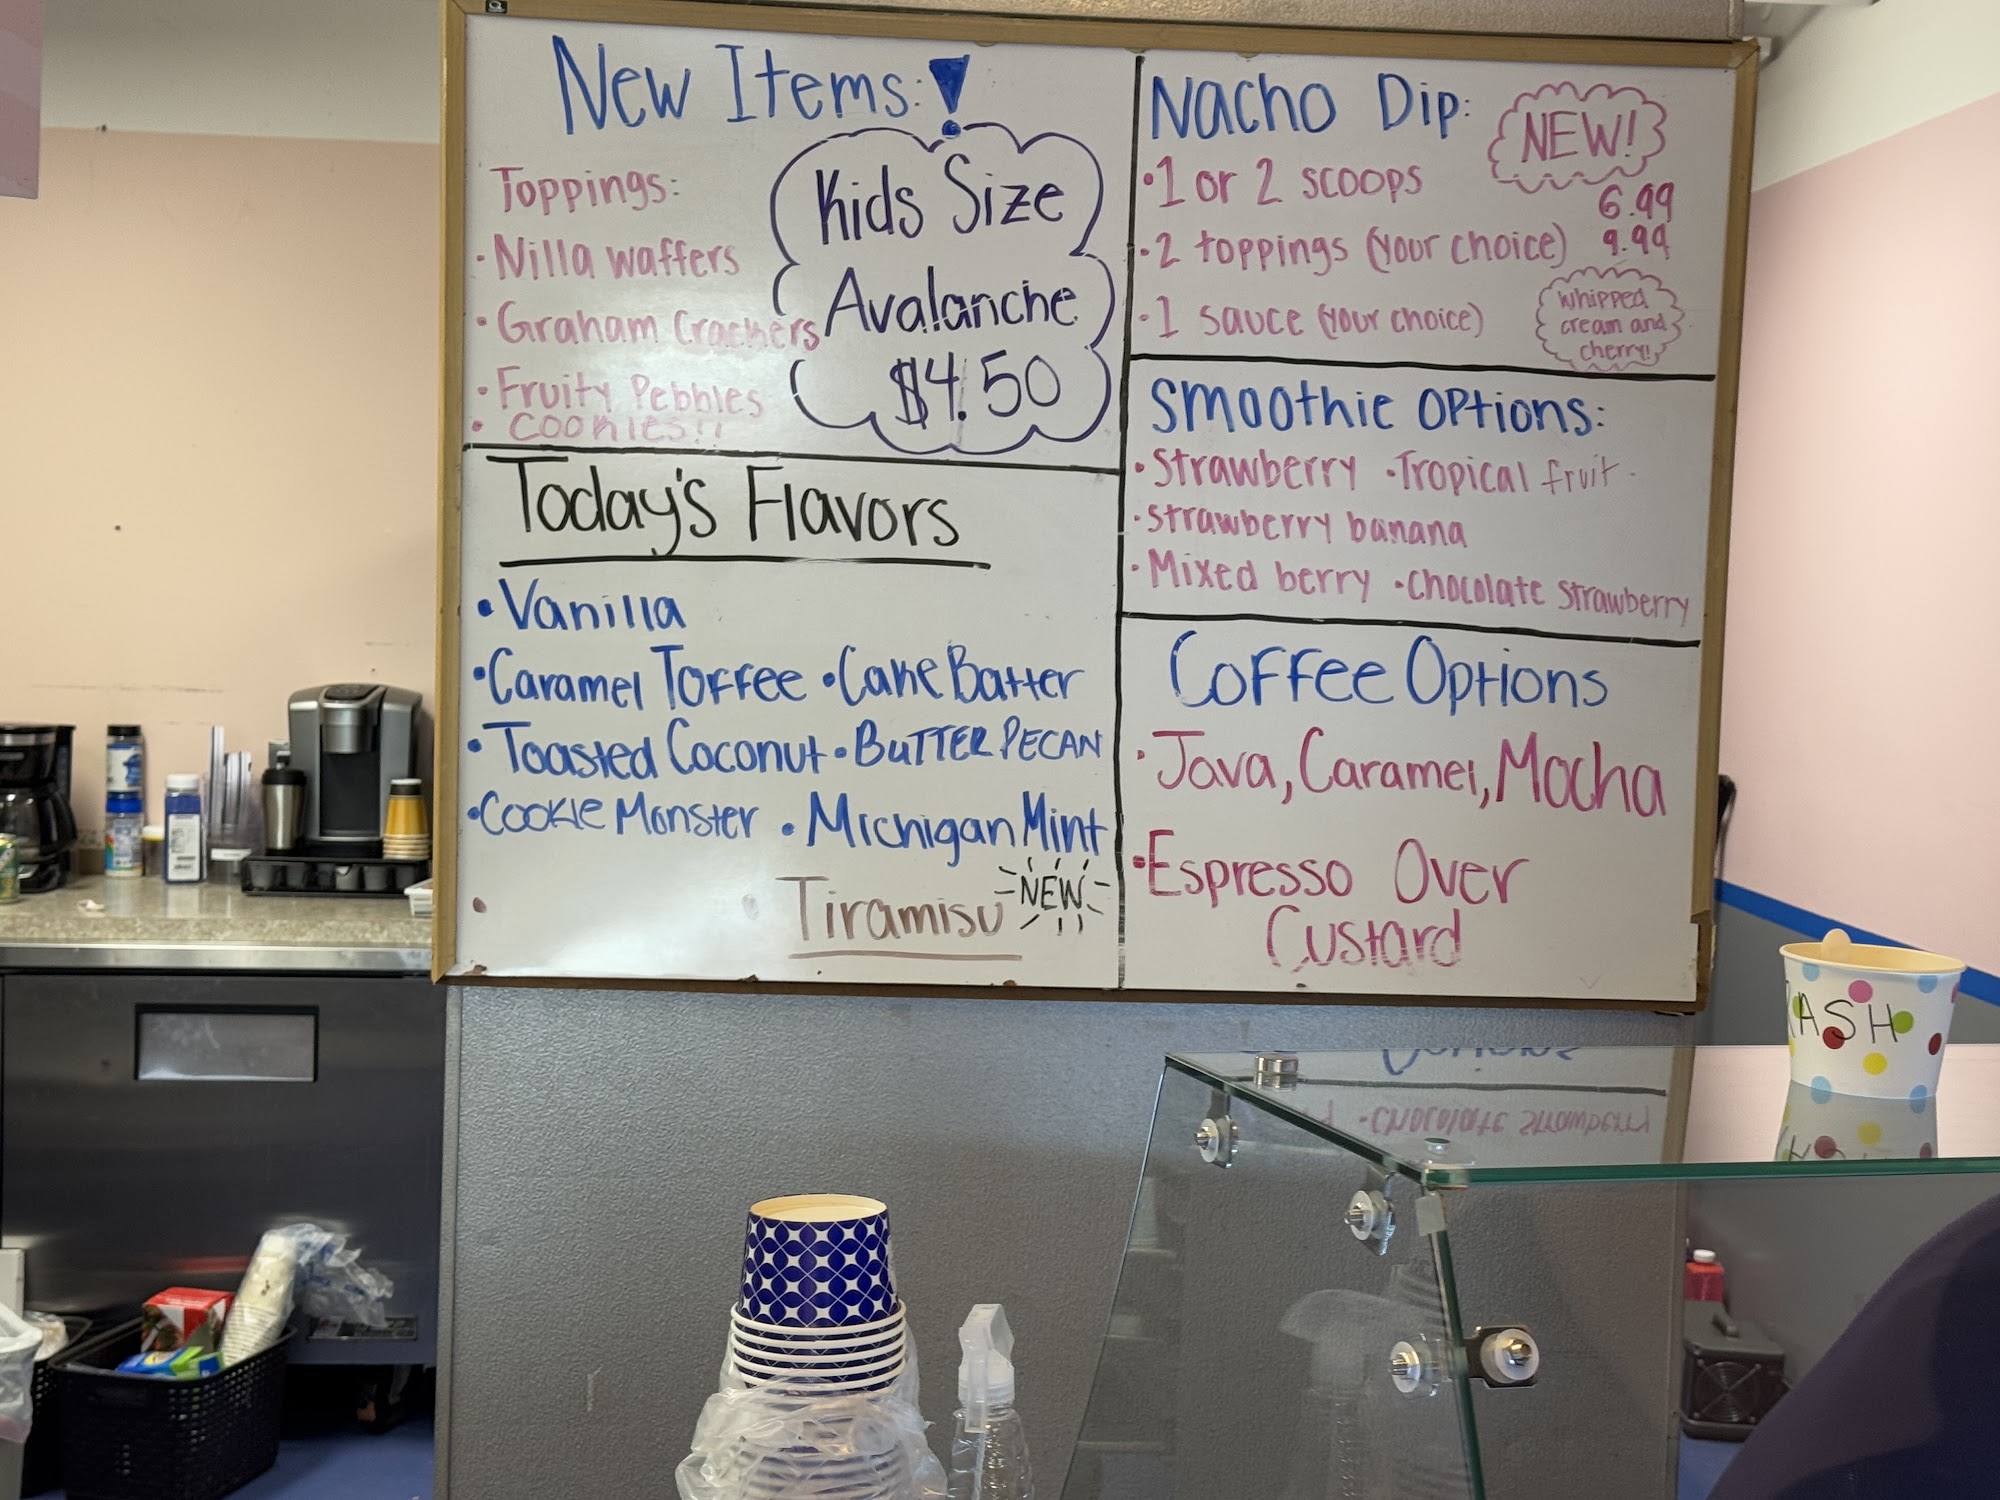 New Items:!
Toppings:
• Nilla waffers
• Graham Crackers
• Fruity Pebbles
• COOKIES!!
Kids Size
Avalanche
$4.50
Today's Flavors
• Vanilla
• Caramel Toffee • Cake Batter
• Toasted Coconut • BUTTER PECAN
• Cookie Monster • Michigan Mint
• Tiramisu NEW
Nacho Dip:
NEW!
• 1 or 2 scoops 6.99
• 2 toppings (your choice) 9.99
• 1 sauce (your choice)
whipped
cream and
cherry!
Smoothie Options:
• Strawberry • Tropical fruit
• strawberry banana
• Mixed berry • chocolate strawberry
Coffee Options
• Java, Caramel, Mocha
• Espresso Over
Custard
RASH